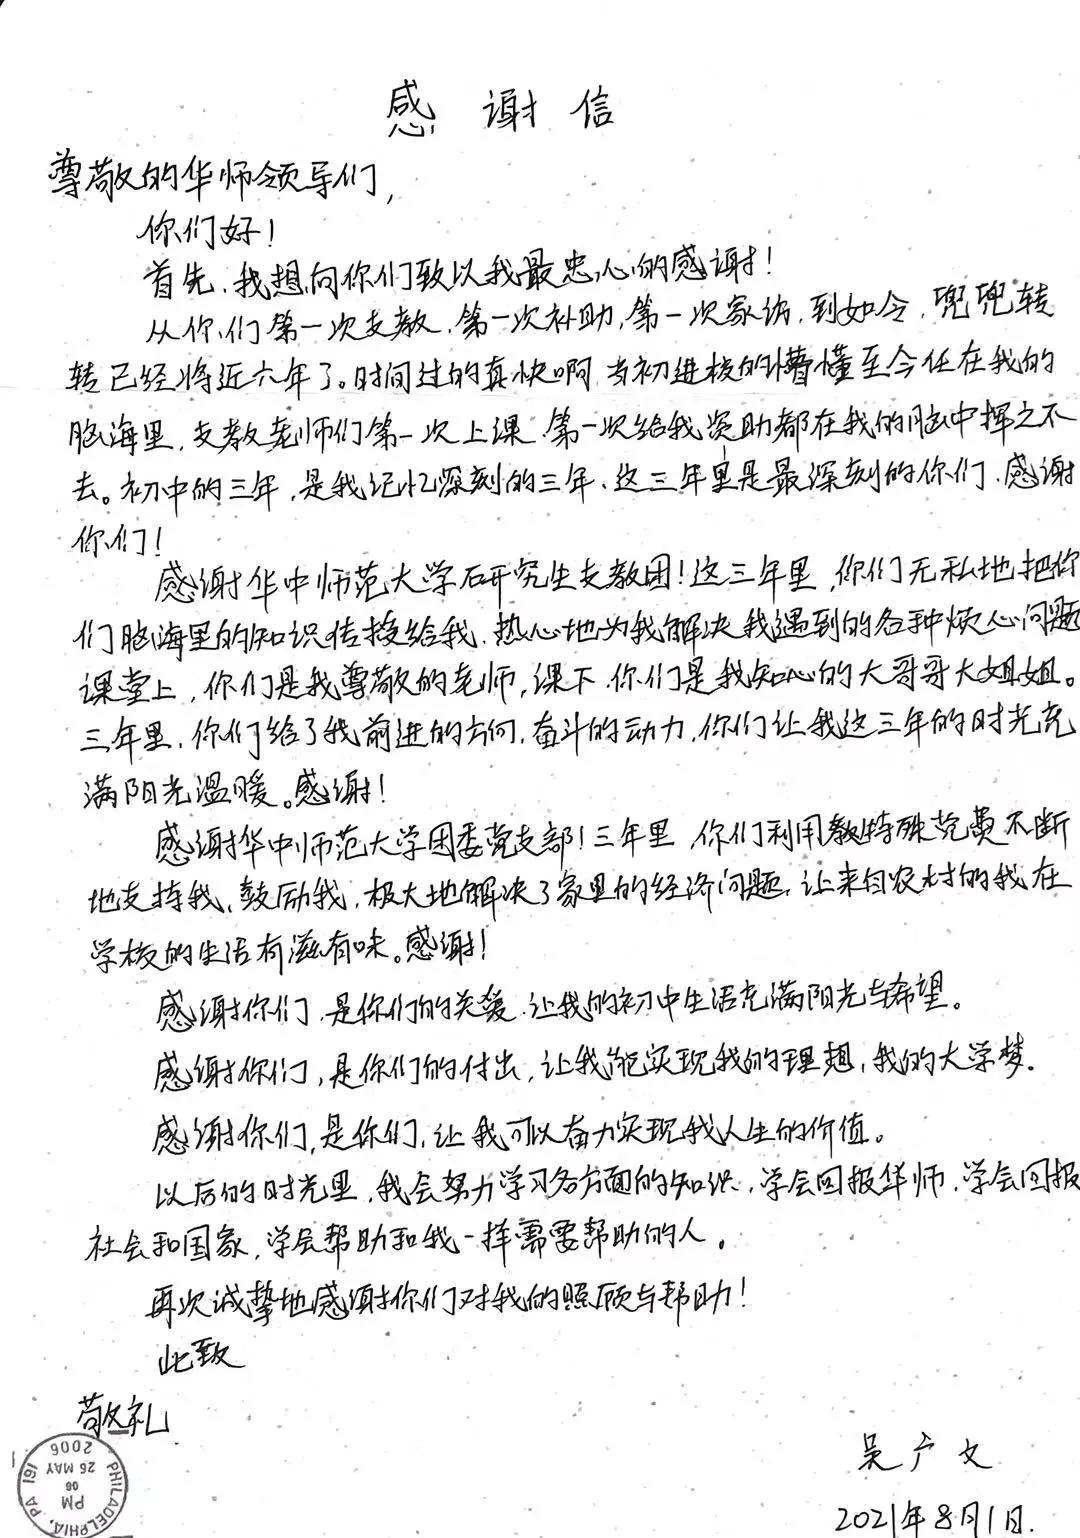 感谢信
尊敬的华师领导们,
你们好!
首先,我想向你们致以我最忠心的感谢!
从你们第一次支教,第一次补助,第一次家访,到如今,兜兜转
转已经将近六年了。时间过的真快啊,当初进校的懵懂至今任在我的
脑海里,支教老师们第一次上课,第一次给我资助都在我的脑中挥之不
去。初中的三年,是我记忆深刻的三年,这三年里是最深刻的你们,感谢
你们!
感谢华中师范大学研究生支教团!这三年里,你们无私地把你
们脑海里的知识传授给我,热心地为我解决我遇到的各种烦心问题
课堂上,你们是我尊敬的老师,课下,你们是我知心的大哥哥大姐姐。
三年里,你们给了我前进的方向,奋斗的动力,你们让我这三年的时光充
满阳光温暖。感谢!
感谢华中师范大学团委党支部!三年里,你们利用教特殊党费不断
地支持我,鼓励我,极大地解决了家里的经济问题,让来自农村的我在
学校的生活有滋有味。感谢!
感谢你们,是你们的关爱,让我的初中生活充满阳光与希望。
感谢你们,是你们的付出,让我能实现我的理想,我的大学梦.
感谢你们,是你们,让我可以奋力实现我人生的价值。
以后的时光里,我会努力学习各方面的知识,学会回报华师,学会回报
社会和国家,学会帮助和我一样需要帮助的人。
再次诚挚地感谢你们对我的照顾与帮助!
此致
敬礼
吴广文
2021年8月1日.
PHILADELPHIA, PA 191
PM
06
26 MAY
2006